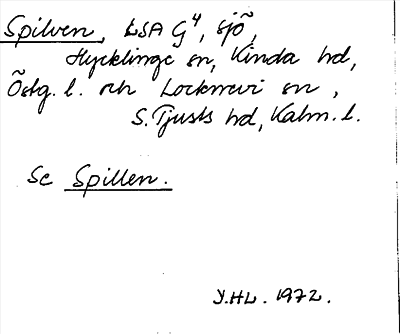 Spilven, LSA G4, sjö,
Hycklinge sn, Kinda hd,
Östg. l. och Locknevi sn,
S. Tjusts hd, Kalm. l.
Se Spillen.
Y.HL. 1972.